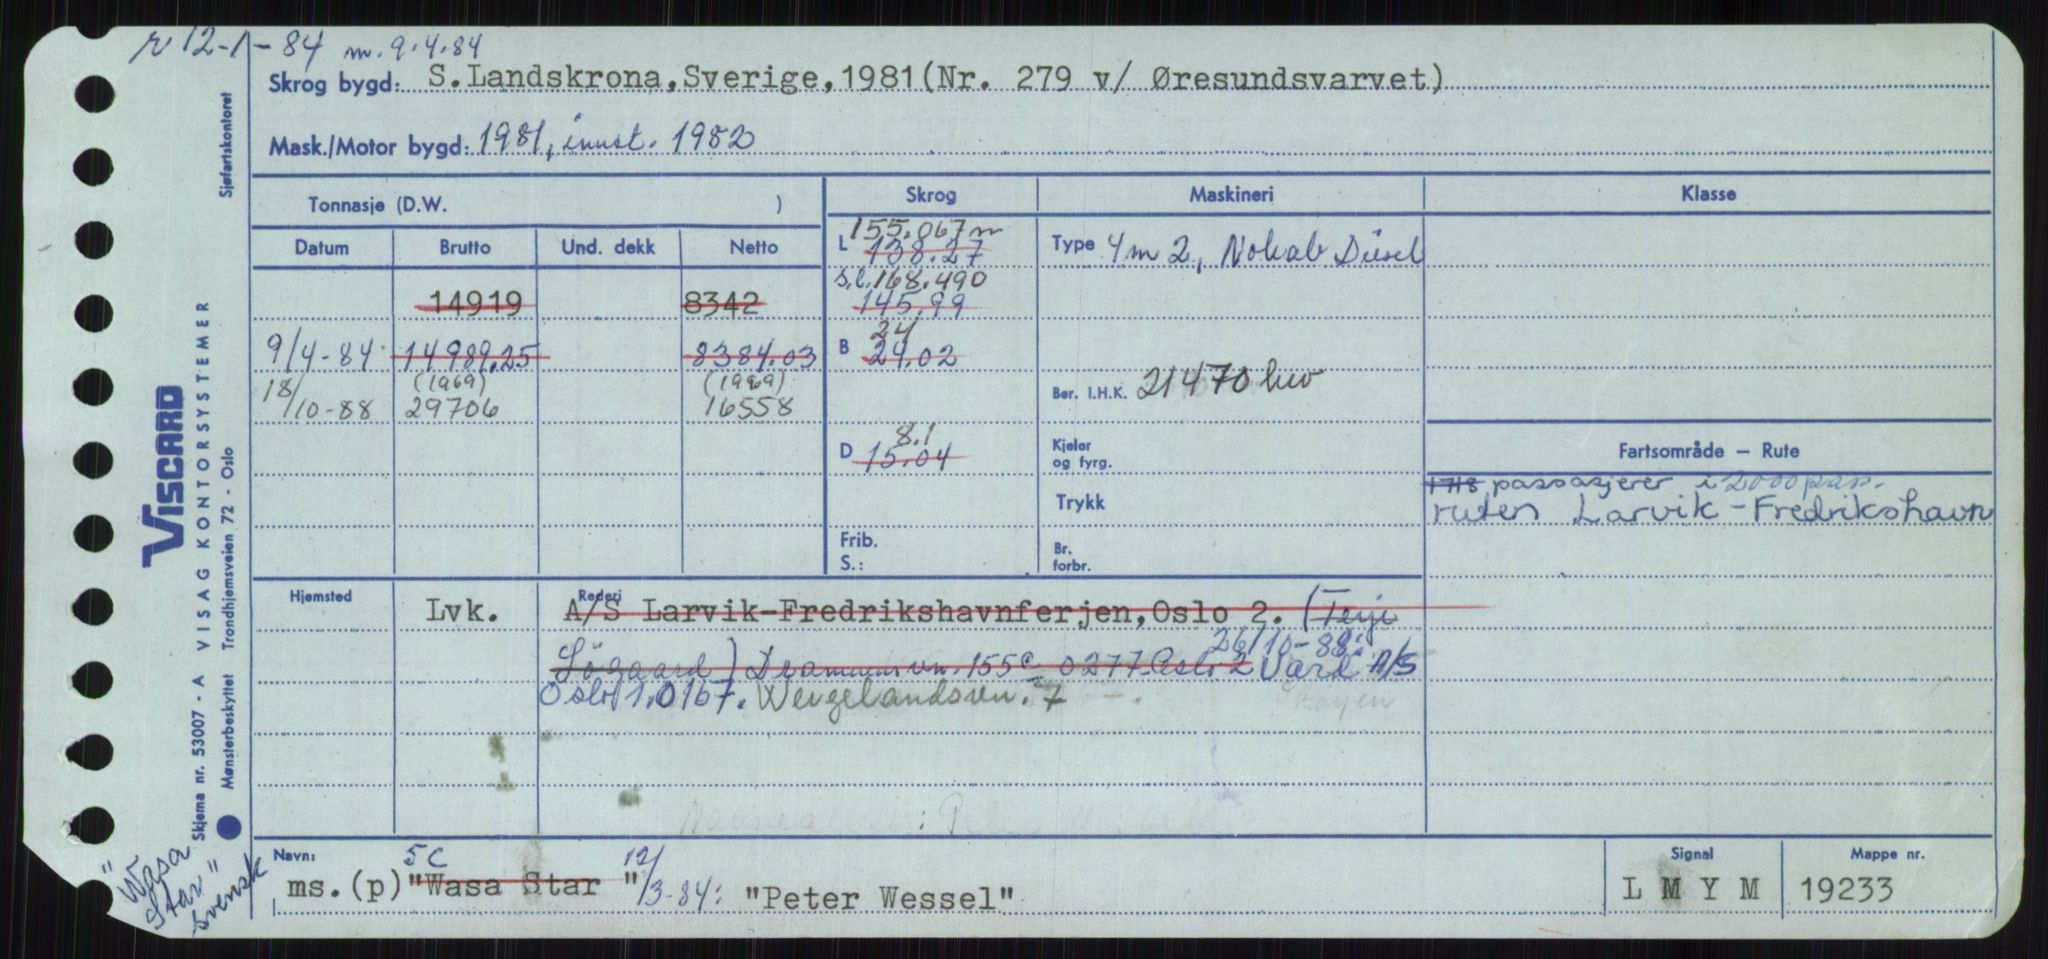 r 12-1-84 m. 9.4.84
Skrog bygd: S.Landskrona,Sverige,1981(Nr. 279 v/ Øresundsvarvet)
Mask./Motor bygd: 1981, innst. 1982
Tonnasje (D.W. ) Skrog Maskineri Klasse
Datum Brutto Und. dekk Netto
L 155.067 m
138.27
Type 4 m 2, Nohab Diesel
s.l. 168.490
14919 8342 145.99
24
9/4-84 14989.25 8384.03 B 24.02
18/10-88 (1969) 29706 (1969) 16558
Ber. I.H.K. 21470 hkv
8.1
D 15.04
Kjeler
og fyrg.
Fartsområde – Rute
1718 passasjerer i 2000 pass.
Trykk ruten Larvik-Fredrikshavn
Frib.
S.:
Br.
forbr.
Hjemsted Rederi
Lvk. A/S Larvik-Fredrikshavnferjen,Oslo 2. (Terje
26/10-88:
Søgaard) Drammensvn. 155c 0277 Oslo 2 Vard A/S
Oslo 1. 0167. Wergelandsvn. 7
Navn: 5C 12/3-84:
ms.(p) "Wasa Star" "Peter Wessel"
Signal Mappe nr.
L M Y M 19233
"Wasa
Star"
svensk
VISCARD
Skjema nr. 53007 - A VISAG KONTORSYSTEMER
Mønsterbeskyttet Trondhjemsveien 72 - Oslo
Sjøfartskontoret